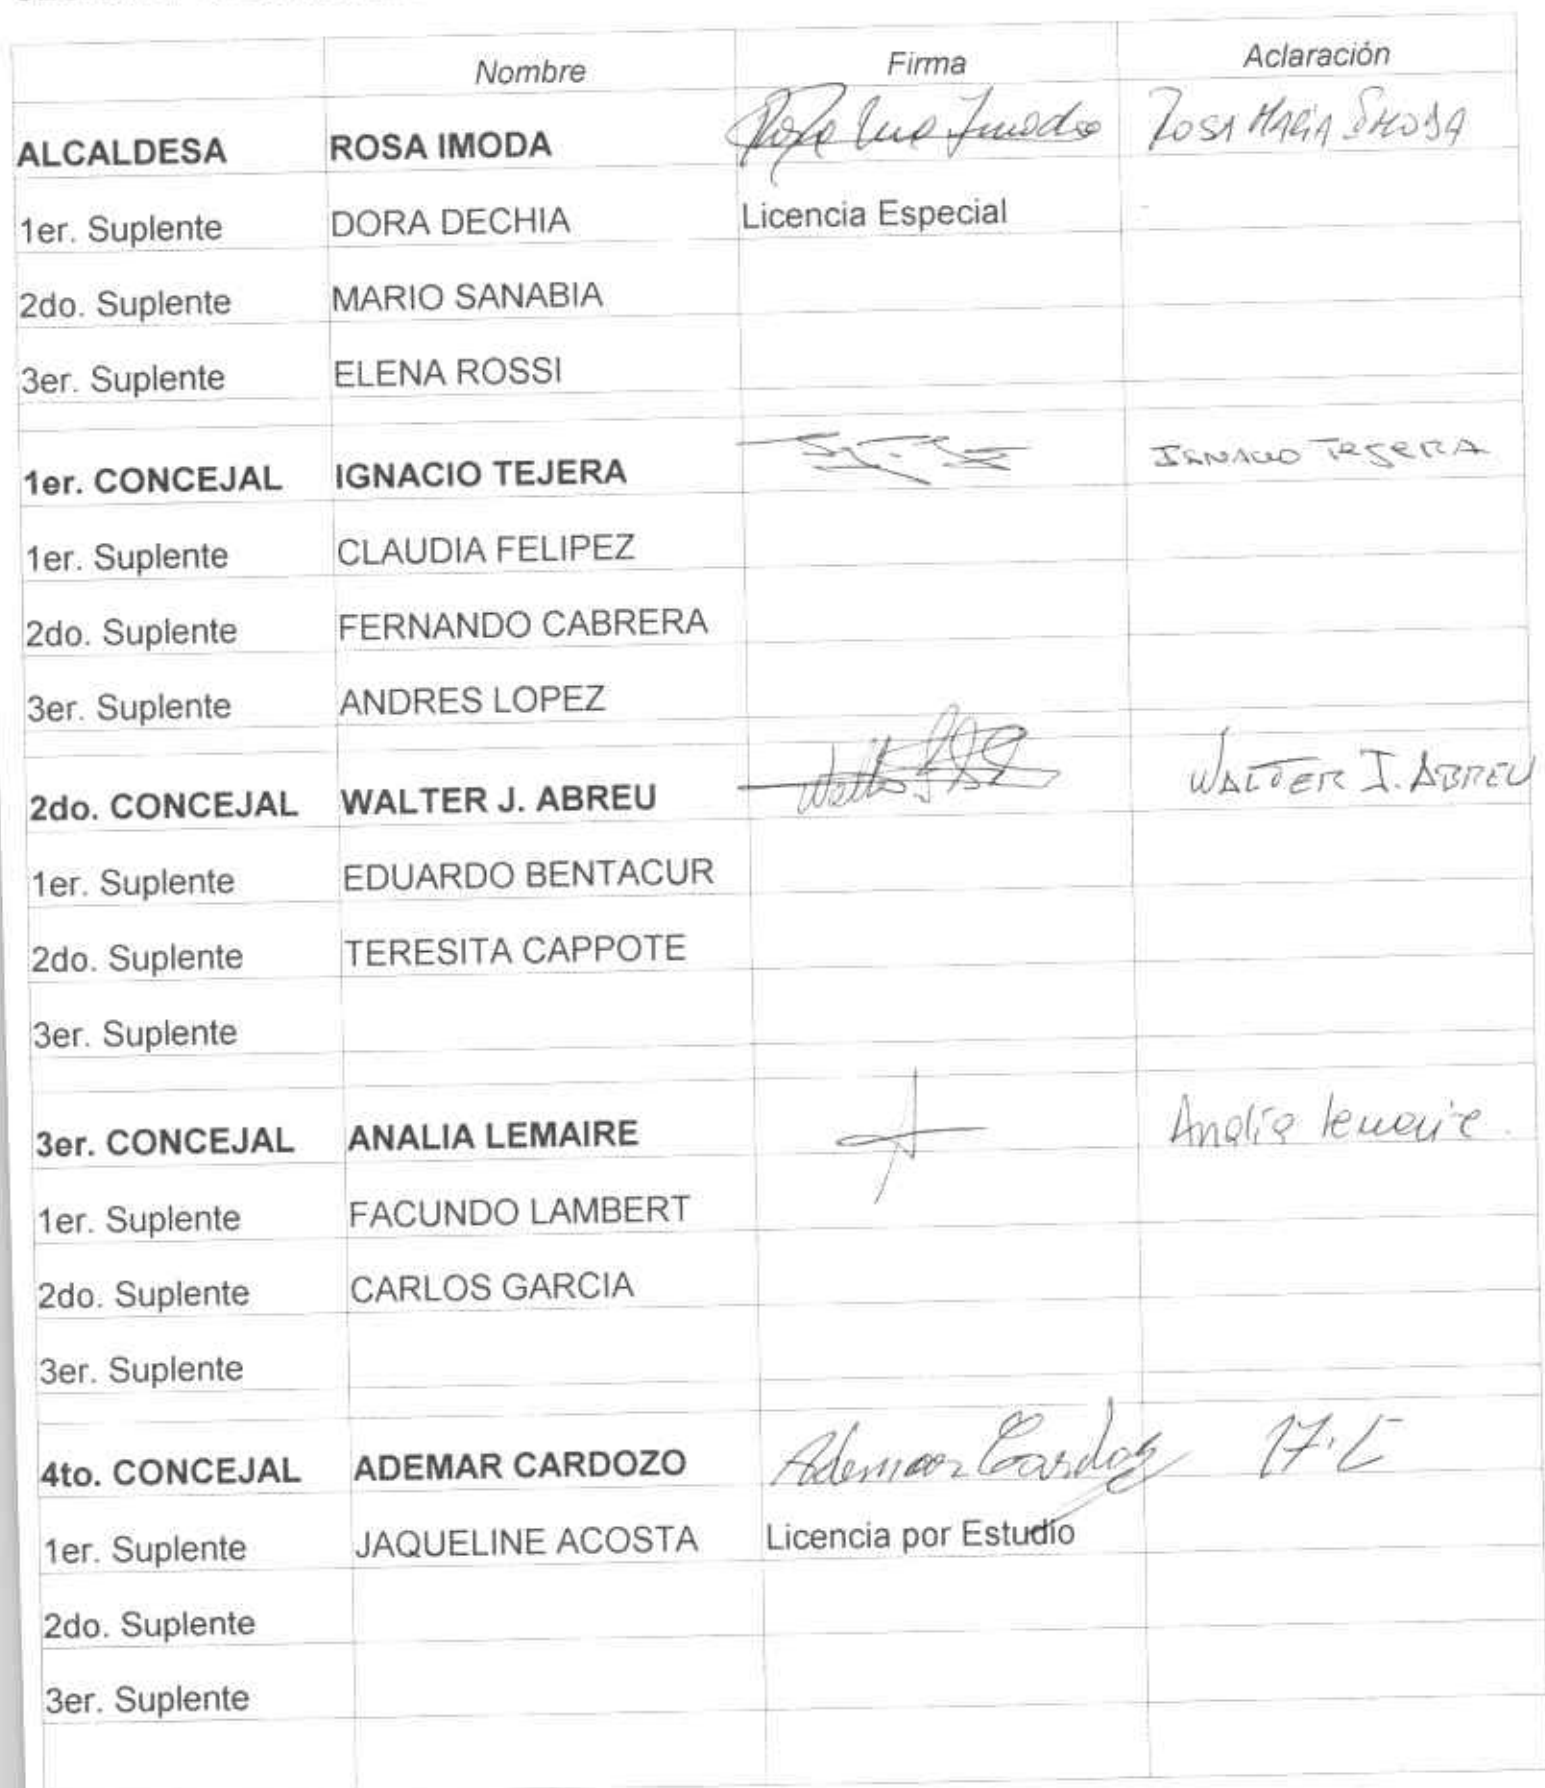 Nombre Firma Aclaración
ALCALDESA ROSA IMODA Rosa Ima Imoda ROSA MARIA IMODA
1er. Suplente DORA DECHIA Licencia Especial
2do. Suplente MARIO SANABIA
3er. Suplente ELENA ROSSI
1er. CONCEJAL IGNACIO TEJERA IGNACIO TEJERA
1er. Suplente CLAUDIA FELIPEZ
2do. Suplente FERNANDO CABRERA
3er. Suplente ANDRES LOPEZ
2do. CONCEJAL WALTER J. ABREU Walter WALTER J. ABREU
1er. Suplente EDUARDO BENTACUR
2do. Suplente TERESITA CAPPOTE
3er. Suplente
3er. CONCEJAL ANALIA LEMAIRE Analia Lemaire.
1er. Suplente FACUNDO LAMBERT
2do. Suplente CARLOS GARCIA
3er. Suplente
4to. CONCEJAL ADEMAR CARDOZO Ademar Cardozo
1er. Suplente JAQUELINE ACOSTA Licencia por Estudio
2do. Suplente
3er. Suplente